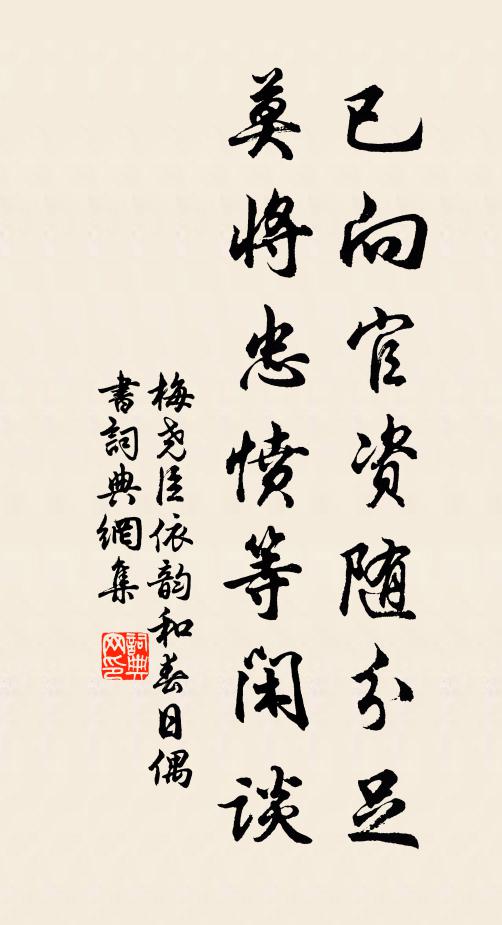 已向官资随分足
莫将忠愤等闲谈
梅尧臣依韵和春日偶
書詞典網集
詞典
网印